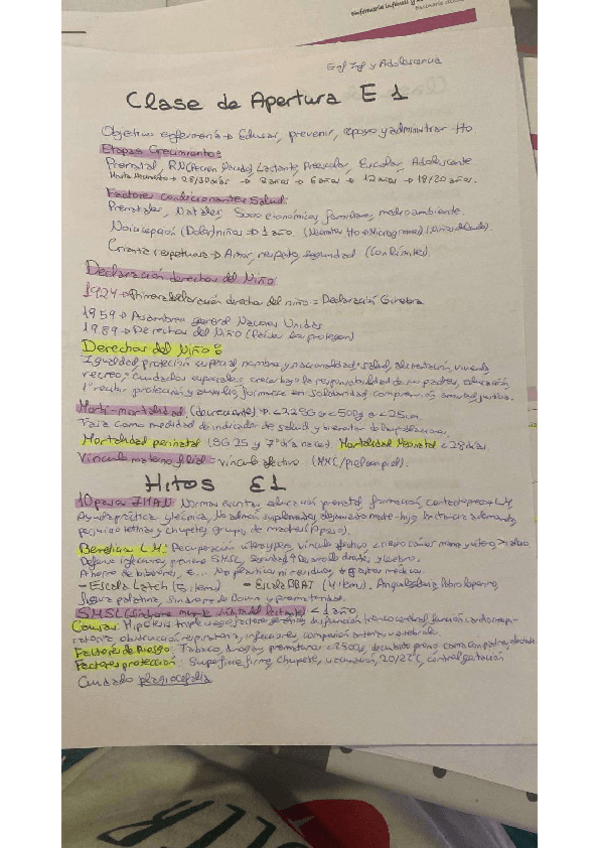 Enf Inf y Adolescencia
Clase de Apertura E 1
Objetivo enfermería → Educar, prevenir, apoyo y administrar tto
Etapas Crecimiento:
Prenatal, RN (Recien Nacido), Lactante, Preescolar, Escolar, Adolescente
→ 28/30 días → 2 años → 6 años → 12 años → 18/20 años.
Factores condicionantes Salud:
Prenatales, Natales, Socio económicos, familiares, medio ambiente.
Nocicepción (Dolor) niños → 1 año.
Crianza respetuosa → Amor, respeto, seguridad (Con límites).
Declaración derechos del Niño
1924 → Primera declaración derechos del niño = Declaración Ginebra
1959 → Asamblea general Naciones Unidas
1989 → Derechos del Niño
Derechos del Niño:
Igualdad, protección especial, nombre y nacionalidad, salud, alimentación, vivienda
recreo, cuidados especiales, crecer bajo la responsabilidad de sus padres, educación,
1º recibir protección y auxilio, formarse en solidaridad, comprensión, amistad, justicia.
Morbi-mortalidad. <22SG o <500g o <25cm.
Tasa como medida de indicador de salud y bienestar
Mortalidad perinatal Mortalidad Neonatal <28 días.
Vínculo materno filial = vínculo afectivo (MMC/piel con piel).
Hitos E1
10 pasos IHAN: Normas escritas, educación prenatal, formación, contacto precoz LM,
Ayuda práctica y técnica, No admin suplementos, alojamiento madre-hijo, lactancia a demanda,
tetinas y chupetes, grupos de madres (Apoyo).
Beneficios LM: Recuperación útero, vínculo afectivo, <riesgo cáncer mama y útero
Defensa infecciones, previene SMSL,
Ahorro de biberones, €...
- Escala Latch - Escala BBAT Anquiloglosia, labio leporino,
fisura palatina, síndrome de Down y prematuridad.
SMSL (Síndrome muerte súbita del lactante) <1 año
Causas: Hipótesis triple riesgo, factores genéticos, disfunción troncocerebral, función cardiorespi-
ratoria, obstrucción respiratoria, infecciones, compresión arterias vertebrales.
Factores de Riesgo: Tabaco, drogas, prematuros, <2500g, decúbito prono,
Factores protección: Superficie firme, chupete, vacunación, 20/22ºC, control gestación
Cuidado plagiocefalia